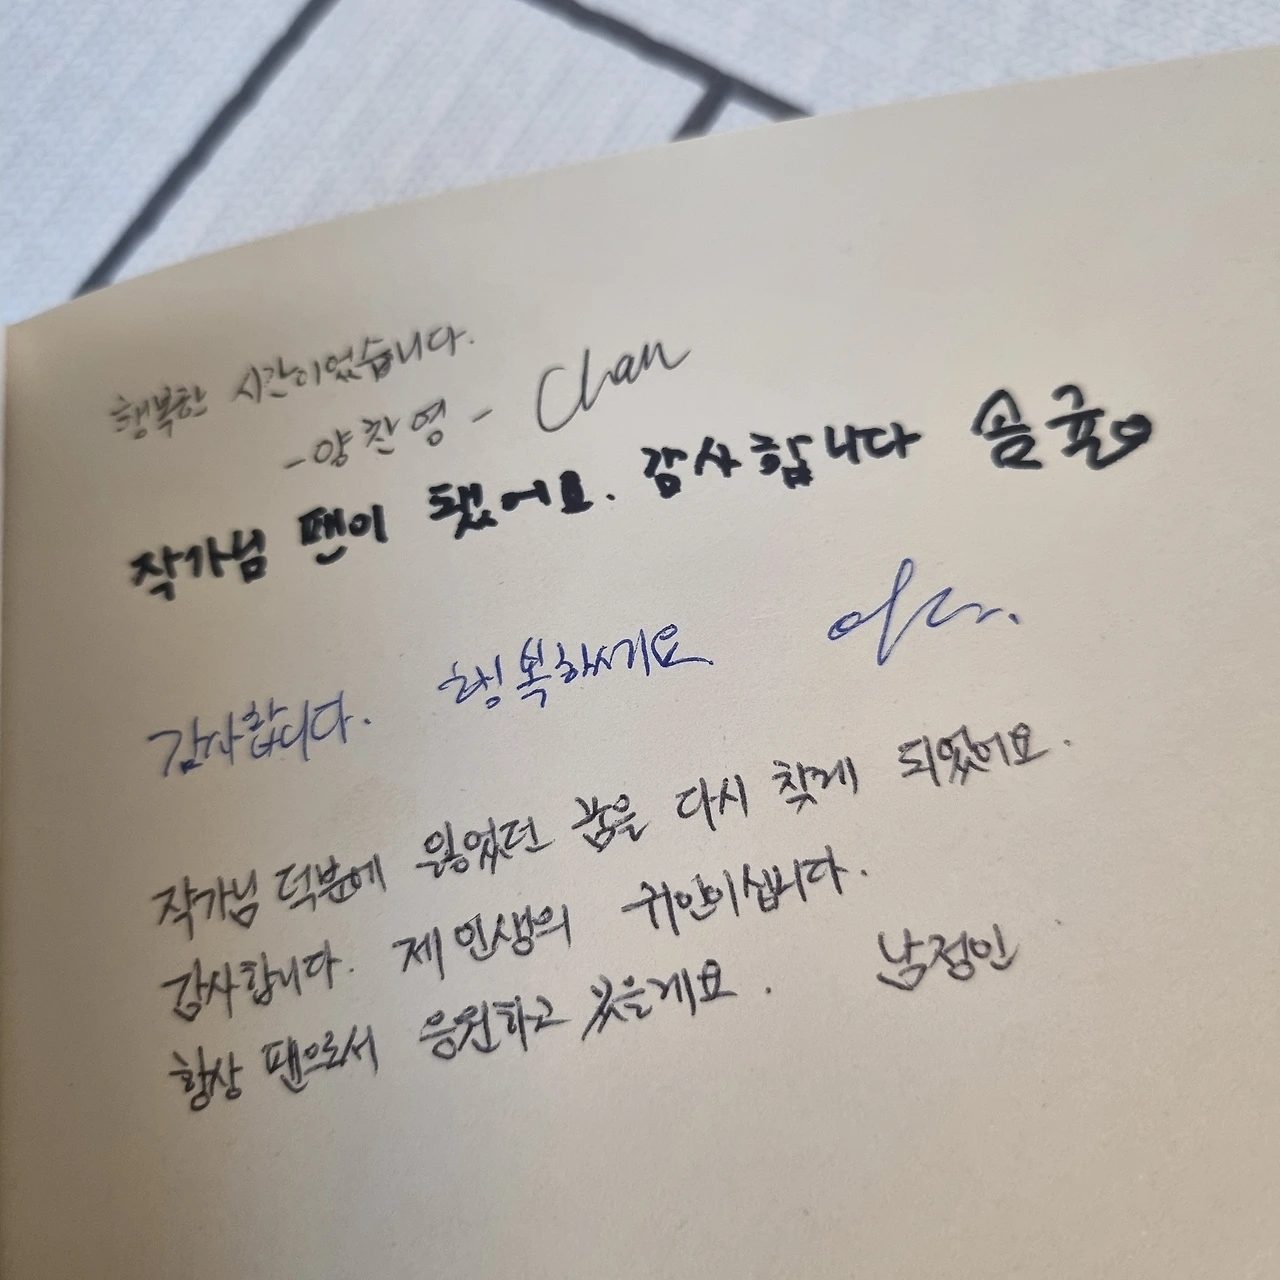 행복한 시간이었습니다.
-양찬영- Chan
작가님 팬이 됐어요. 감사합니다 솜귤
감사합니다. 행복하세요
작가님 덕분에 잃었던 꿈을 다시 찾게 되었어요.
감사합니다. 제 인생의 귀인이십니다.
항상 팬으로서 응원하고 있을게요. 남정인